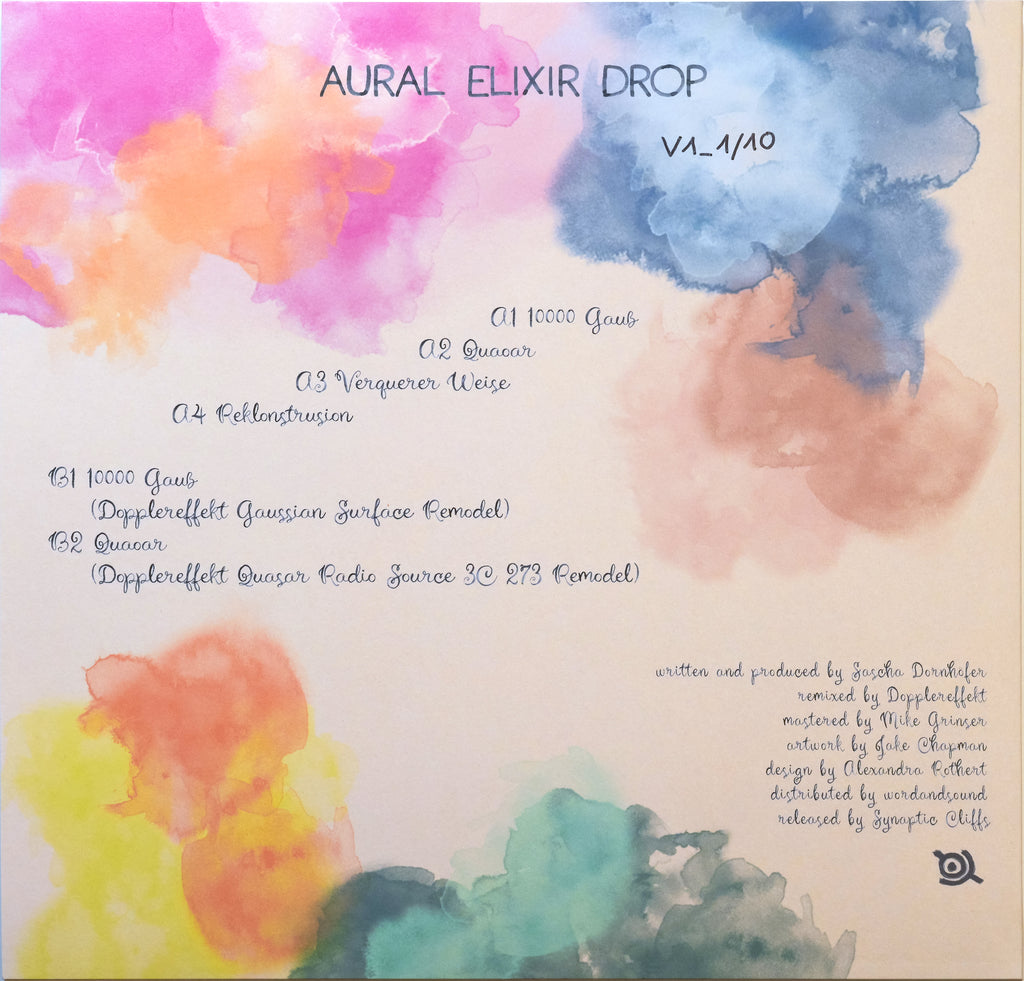 AURAL ELIXIR DROP
V1_1/10
A1 10000 Gauß
A2 Quaoar
A3 Verquerer Weise
A4 Reklonstrusion
B1 10000 Gauß
(Dopplereffekt Gaussian Surface Remodel)
B2 Quaoar
(Dopplereffekt Quasar Radio Source 3C 273 Remodel)
written and produced by Sascha Dornhöfer
remixed by Dopplereffekt
mastered by Mike Grinser
artwork by Jake Chapman
design by Alexandra Rothert
distributed by wordandsound
released by Synaptic Cliffs